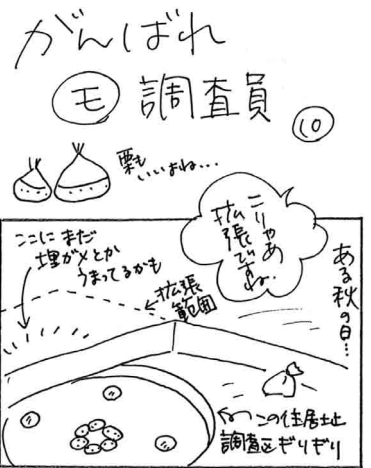 がんばれ
モ 調査員
10
栗も
いいよね…
ある秋の日…
こりゃあ
拡張ですね.
ここにまだ
埋ガメとか
うまってるかも
拡張
範囲
この住居址
調査区ぎりぎり